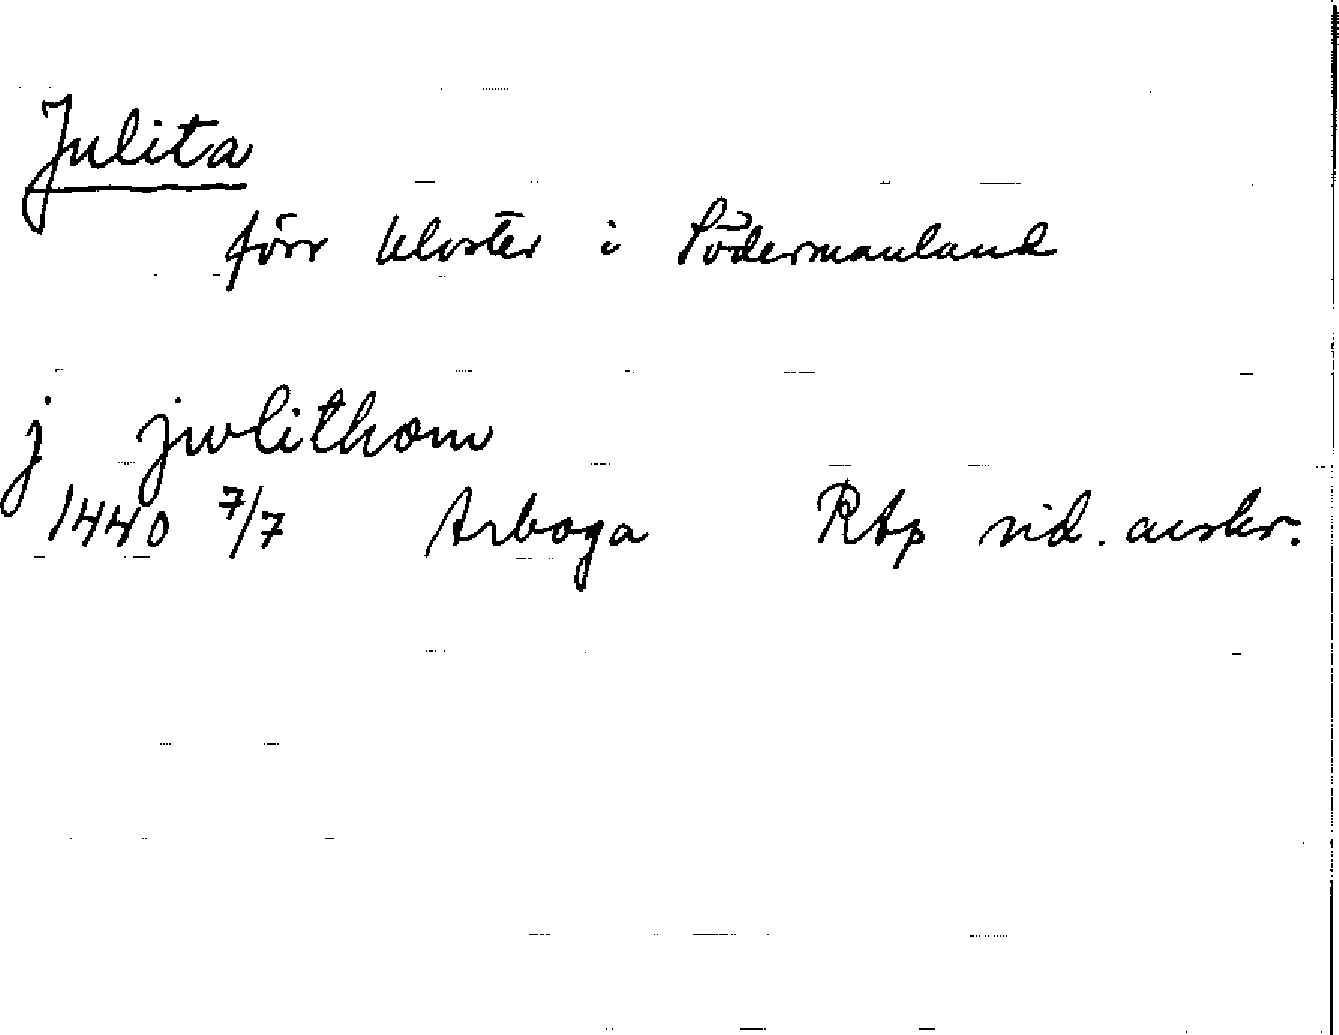 Julita
förr kloster i Södermanland
j jwlithom
1440 7/7 Arboga RAp vid. avskr.